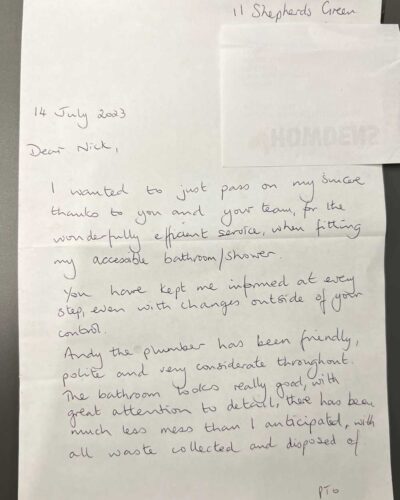 11 Shepherds Green
HOWDENS
14 July 2023
Dear Nick,
I wanted to just pass on my sincere
thanks to you and your team, for the
wonderfully efficient service, when fitting
my accessible bathroom/shower.
You have kept me informed at every
step, even with changes outside of your
control.
Andy the plumber has been friendly,
polite and very considerate throughout.
The bathroom looks really good, with
great attention to detail, there has been
much less mess than I anticipated, with
all waste collected and disposed of
PTO